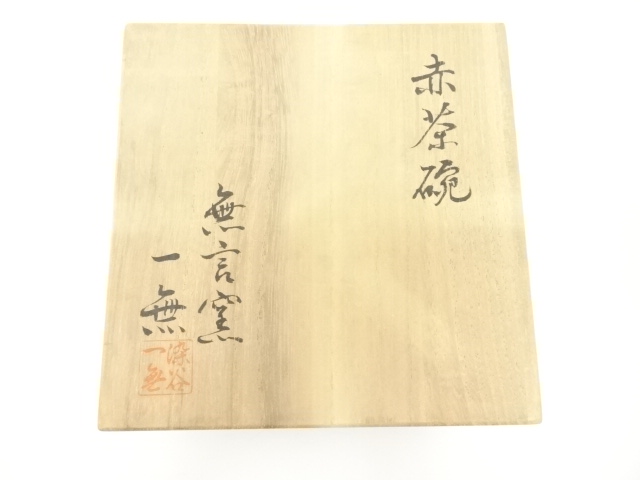 赤茶碗
無言窯
一無
染谷
一無